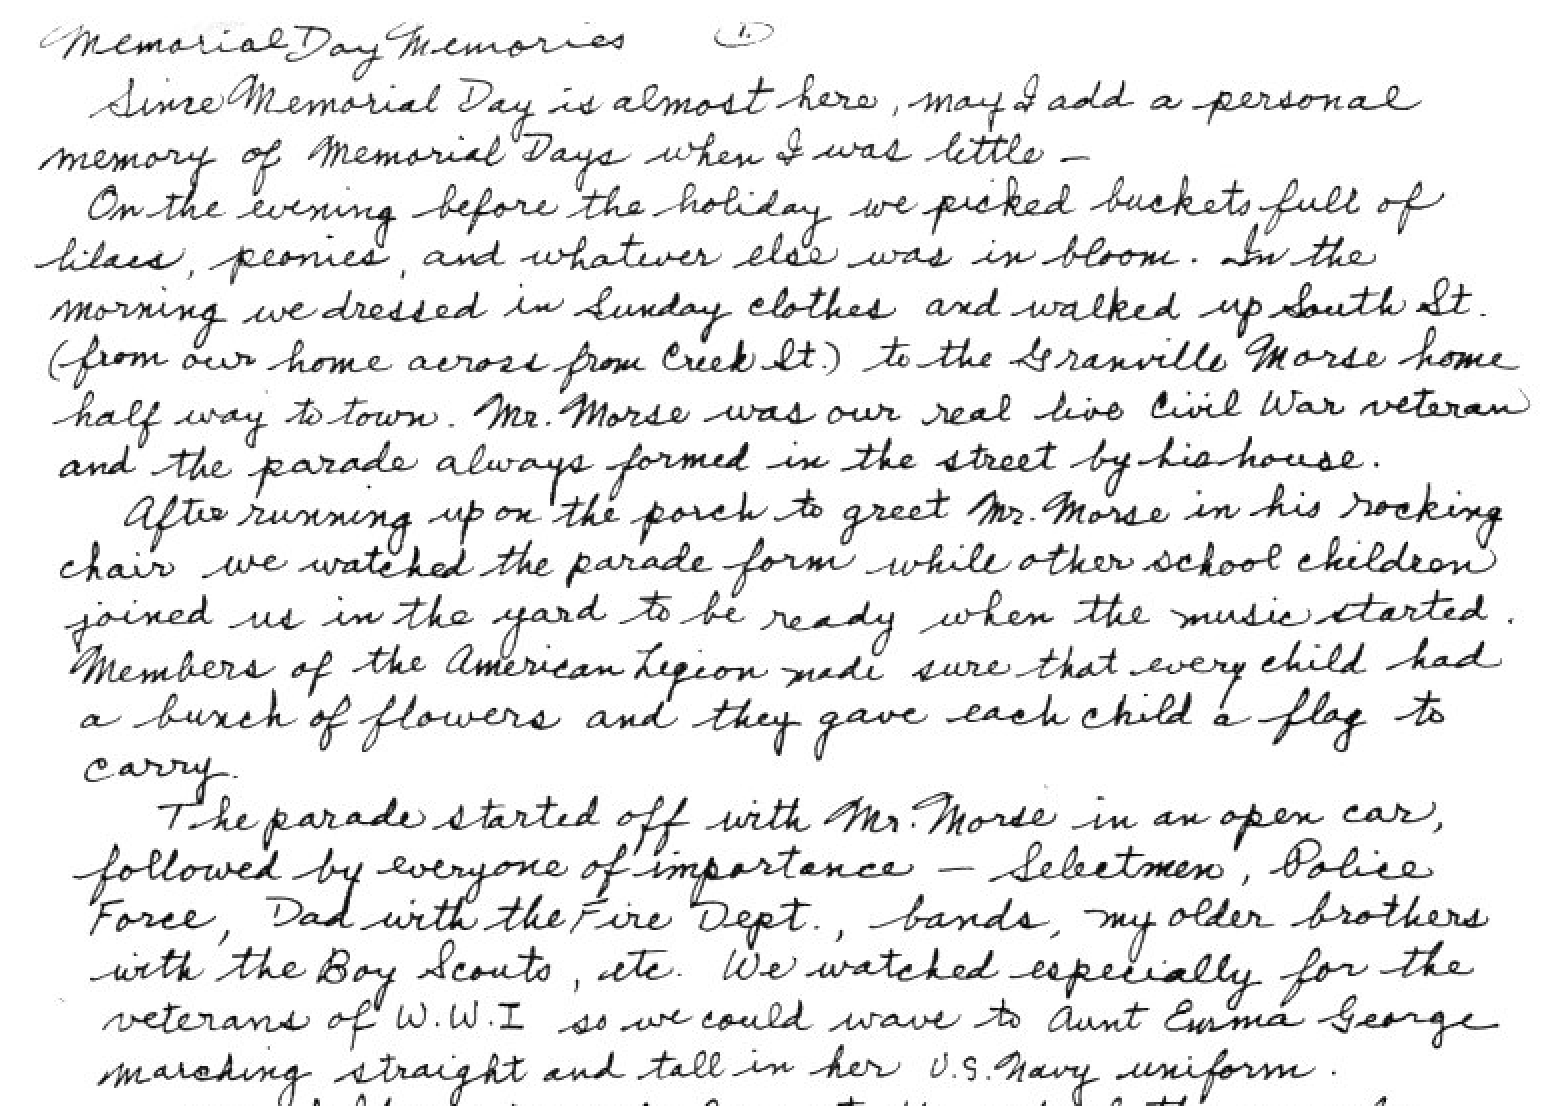 Memorial Day Memories 1.
Since Memorial Day is almost here, may I add a personal
memory of Memorial Days when I was little —
On the evening before the holiday we picked buckets full of
lilacs, peonies, and whatever else was in bloom. In the
morning we dressed in Sunday clothes and walked up South St.
(from our home across from Creek St.) to the Granville Morse home
half way to town. Mr. Morse was our real live Civil War veteran
and the parade always formed in the street by his house.
After running up on the porch to greet Mr. Morse in his rocking
chair we watched the parade form while other school children
joined us in the yard to be ready when the music started.
Members of the American Legion made sure that every child had
a bunch of flowers and they gave each child a flag to
carry.
The parade started off with Mr. Morse in an open car,
followed by everyone of importance — Selectmen, Police
Force, Dad with the Fire Dept., bands, my older brothers
with the Boy Scouts, etc. We watched especially for the
veterans of W.W.I so we could wave to Aunt Emma George
marching straight and tall in her U.S. Navy uniform.